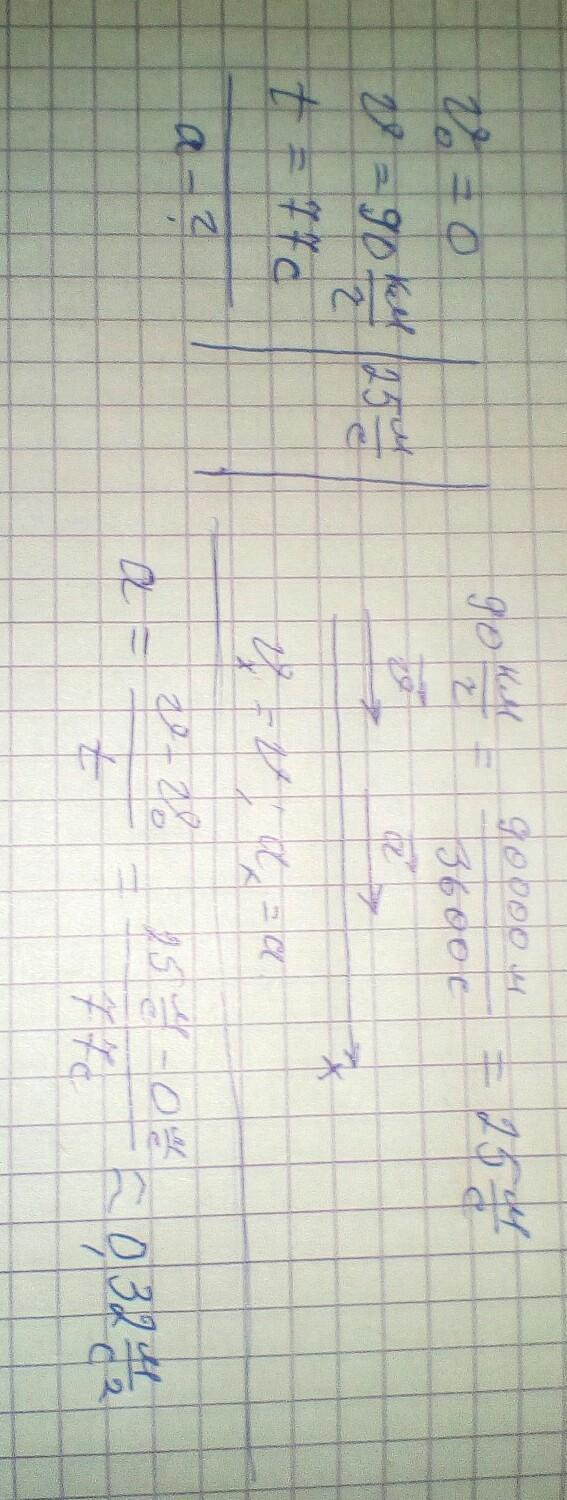 v₀ = 0
v = 90 км/г | 25 м/с
t = 77с
a - ?
90 км/г = 90000 м / 3600 с = 25 м/с
v⃗ a⃗
x
vₓ = v, aₓ = a
a = (v - v₀) / t = (25 м/с - 0 м/с) / 77с ≈ 0,32 м/с²